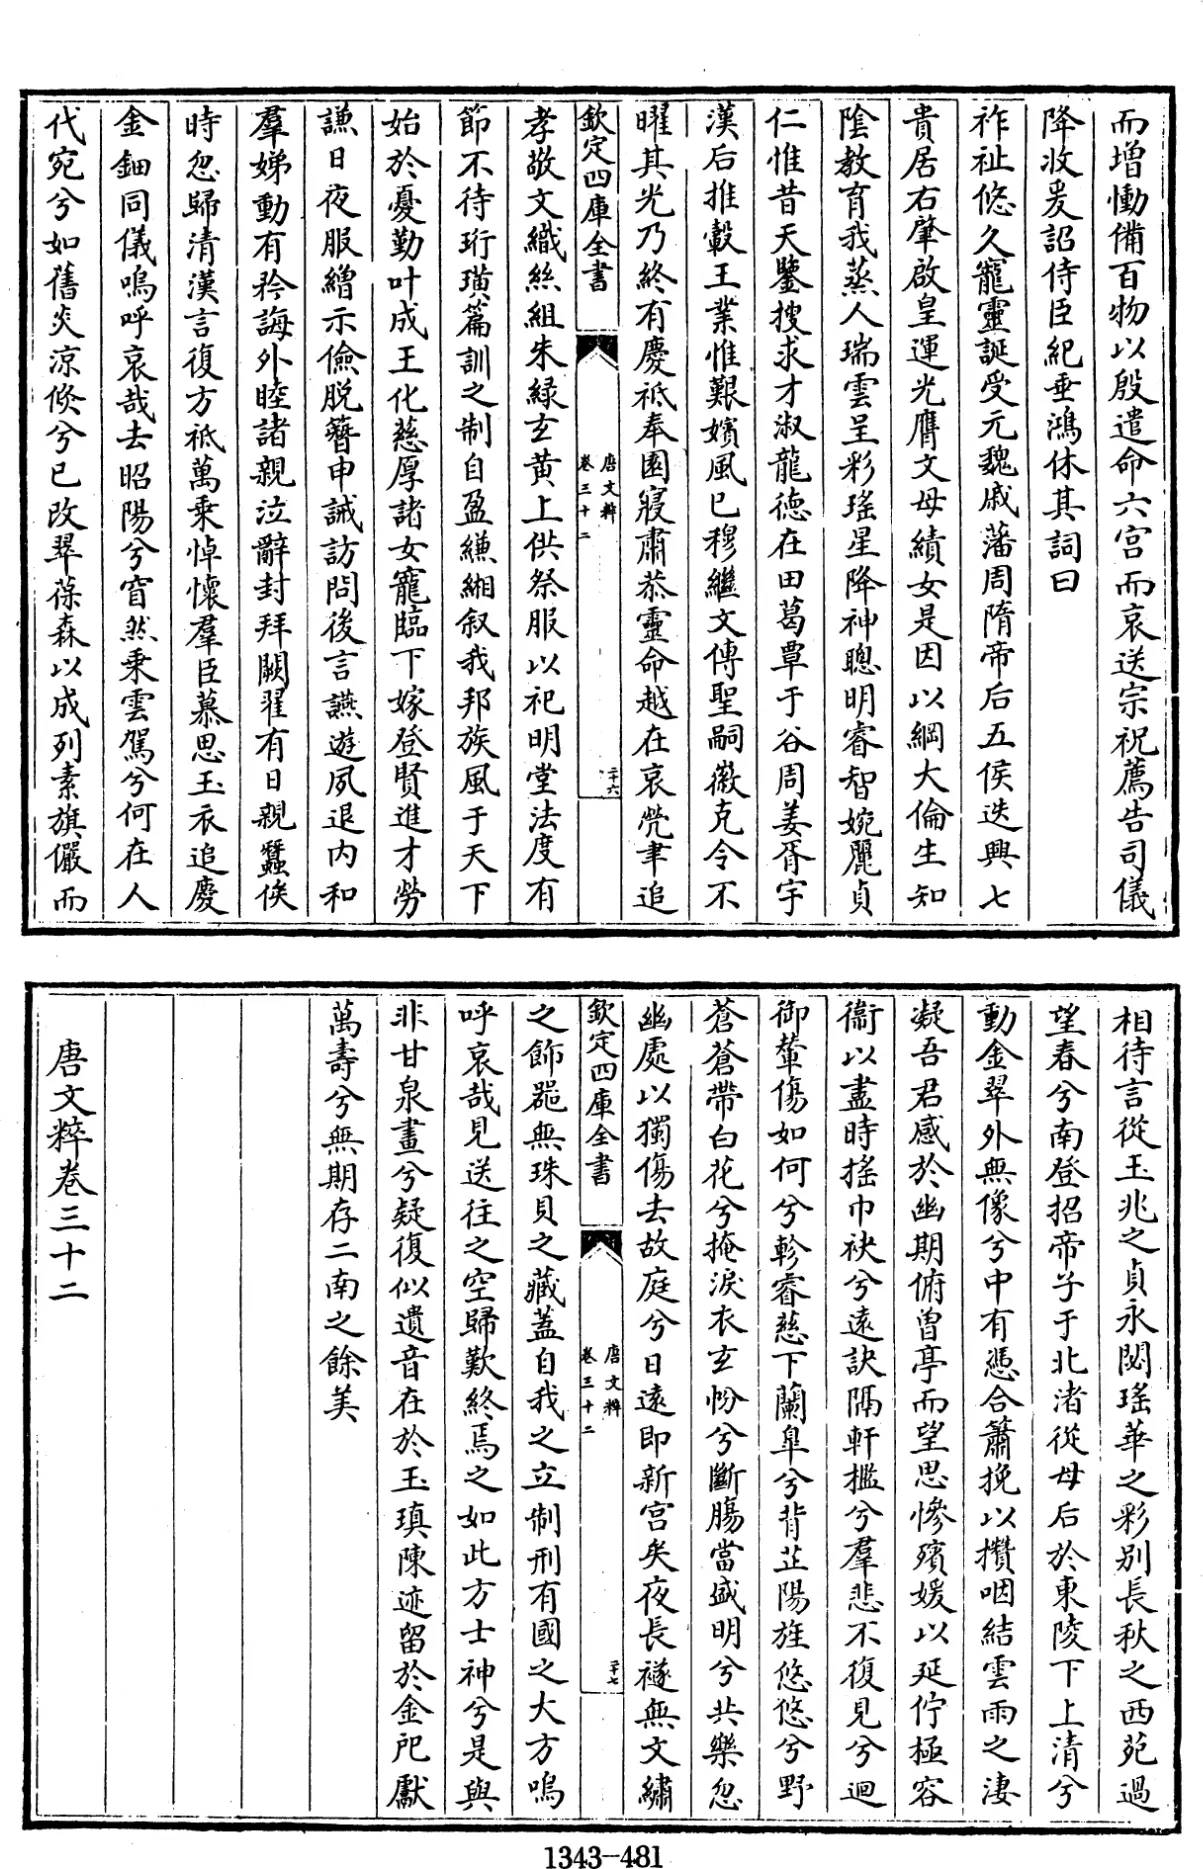 而增慟備百物以殷遣命六宫而哀送宗祝薦告司儀
降收爰詔侍臣紀垂鴻休其詞曰
祚祉悠久寵靈誕受元魏戚藩周隋帝后五侯迭興七
貴居右肇啟皇運光膺文母續女是因以綱大倫生知
陰教育我蒸人瑞雲呈彩瑤星降神聰明睿智婉麗貞
仁惟昔天鑒搜求才淑龍德在田葛覃于谷周姜胥宇
漢后推轂王業惟艱嬪風已穆繼文傳聖嗣徽克令不
曜其光乃終有慶祗奉園寢肅恭靈命越在哀煢聿追
欽定四庫全書
唐文粹
卷三十二
二十六
孝敬文織絲組朱緑玄黄上供祭服以祀明堂法度有
節不待珩璜篇訓之制自盈縑緗叙我邦族風于天下
始於憂勤叶成王化慈厚諸女寵臨下嫁登賢進才勞
謙日夜服繒示儉脱簪申誡訪問後言讌遊夙退内和
羣娣動有矜誨外睦諸親泣辭封拜闕翟有日親蠶俟
時忽歸清漢言復方祗萬乘悼懷羣臣慕思玉衣追慶
金鈿同儀嗚呼哀哉去昭陽兮窅然乘雲駕兮何在人
代宛兮如舊炎涼倐兮已改翠葆森以成列素旗儼而
相待言從玉兆之貞永閟瑤華之彩别長秋之西苑過
望春兮南登招帝子于北渚從母后於東陵下上清兮
動金翠外無像兮中有憑合簫挽以攢咽結雲雨之淒
凝吾君感於幽期俯曽亭而望思慘殯媛以延佇極容
衞以盡時摇巾袂兮遠訣隔軒檻兮羣悲不復見兮迴
御輦傷如何兮軫睿慈下蘭臯兮背芷陽旌悠悠兮野
蒼蒼帶白花兮掩淚衣玄帉兮斷腸當盛明兮共樂忽
幽處以獨傷去故庭兮日遠即新宫矣夜長襚無文繡
欽定四庫全書
唐文粹
卷三十二
二十七
之飾器無珠貝之藏蓋自我之立制刑有國之大方嗚
呼哀哉見送往之空歸歎終焉之如此方士神兮是與
非甘泉畫兮疑復似遺音在於玉瑱陳迹留於金戺獻
萬壽兮無期存二南之餘美
唐文粹卷三十二
1343-481